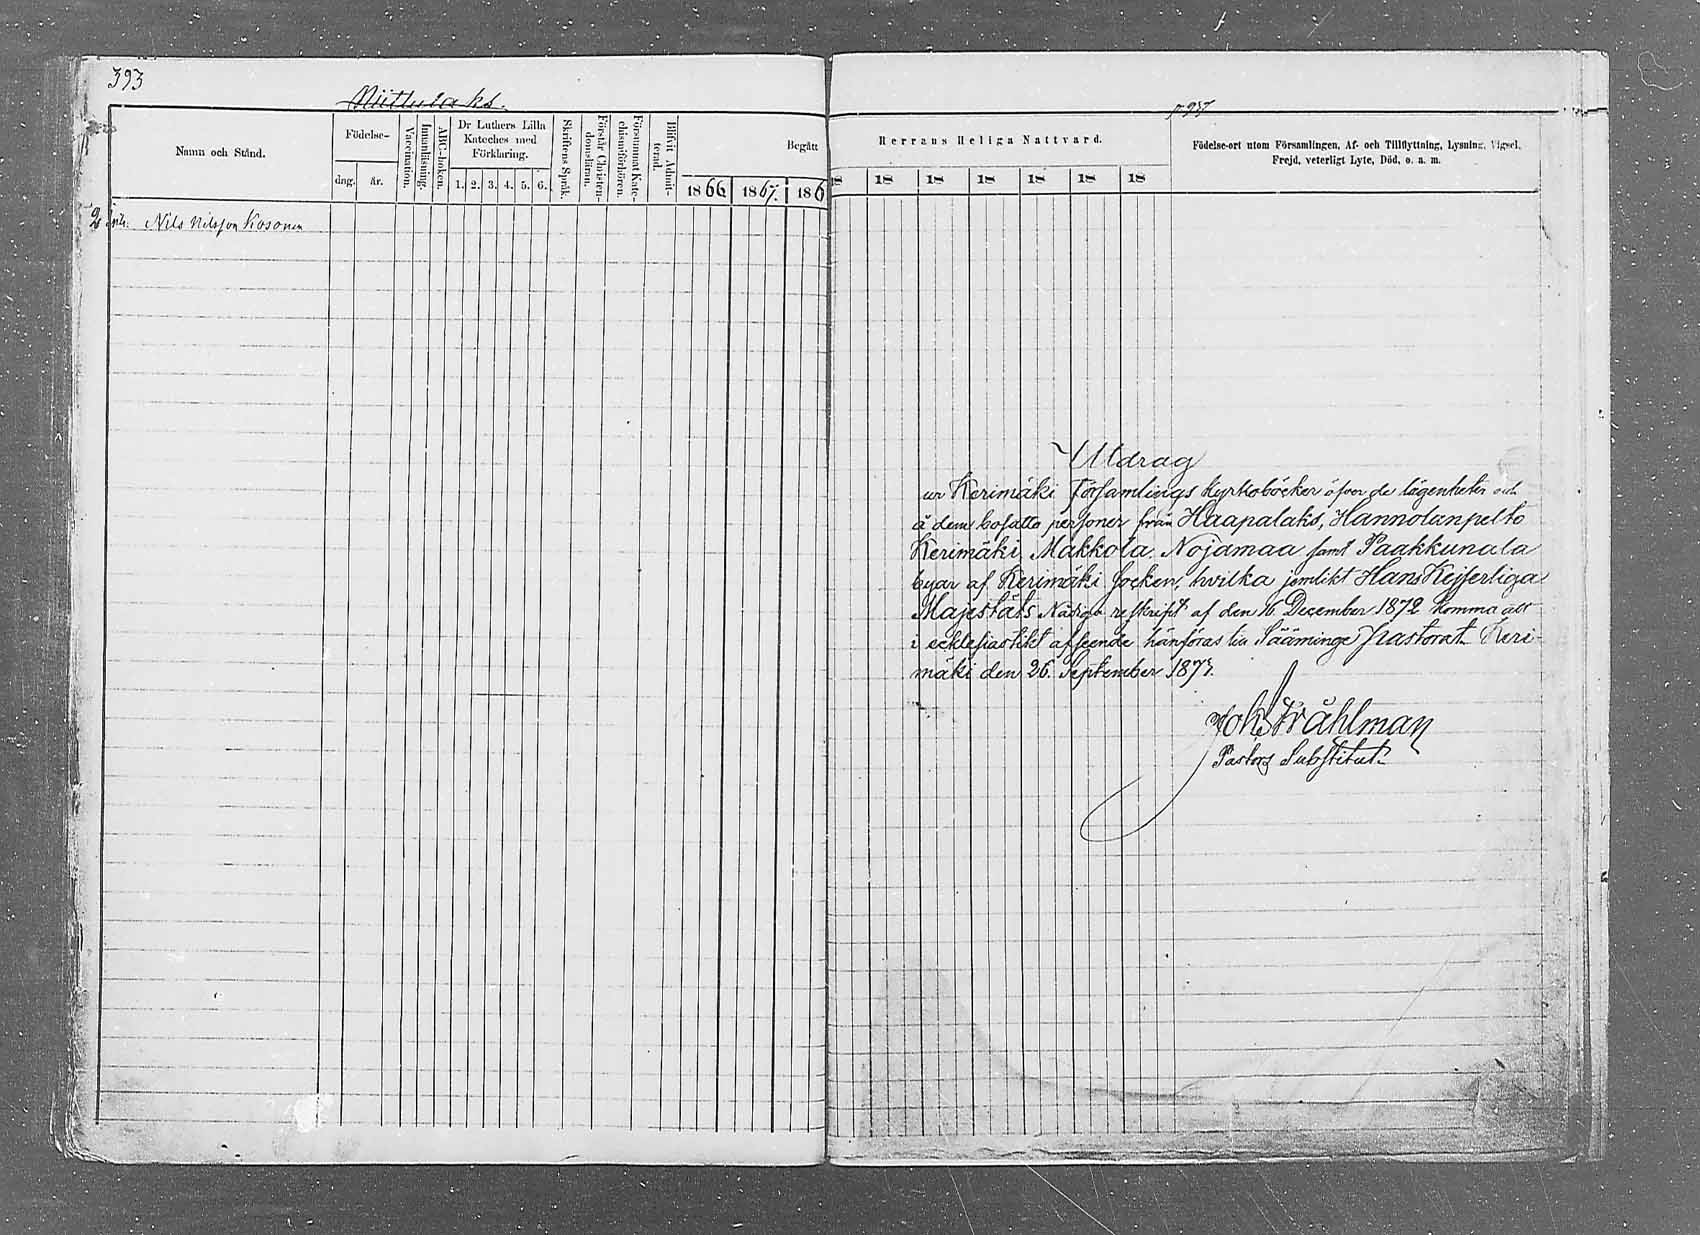 393
Niittulaks.
Namn och Stånd.
Födelse-
dng. år.
Vaccination.
Innanläsning.
ABC-boken.
Dr Luthers Lilla
Kateches med
Förklaring.
1. 2. 3. 4. 5. 6.
Skriftens Språk.
Förstår Christen-
domsläran.
Försummat Kate-
chismiförhören.
Blifvit Admit-
terad.
Begått
1866 1867. 186
2 Nils Nilsson Kosonen
Herrans Heliga Nattvard.
18 18 18 18 18 18 18
Födelse-ort utom Församlingen, Af- och Tillflyttning, Lysning, Vigsel,
Frejd, veterligt Lyte, Död, o. a. m.
Utdrag
ur Kerimäki Församlings kyrkoböcker öfver de lägenheter och
å dem bosatta personer från Haapalaks, Hannolanpelto
Kerimäki, Makkola, Nojamaa samt Paakkunala
byar af Kerimäki socken, hvilka jemlikt Hans Kejserliga
Majestäts Nådiga reskript af den 16 December 1872 komma att
i ecklesiastikt afseende hänföras till Sääminge pastorat. Keri-
mäki den 26. September 1873.
Joh. Stråhlman
Pastors Substitut.